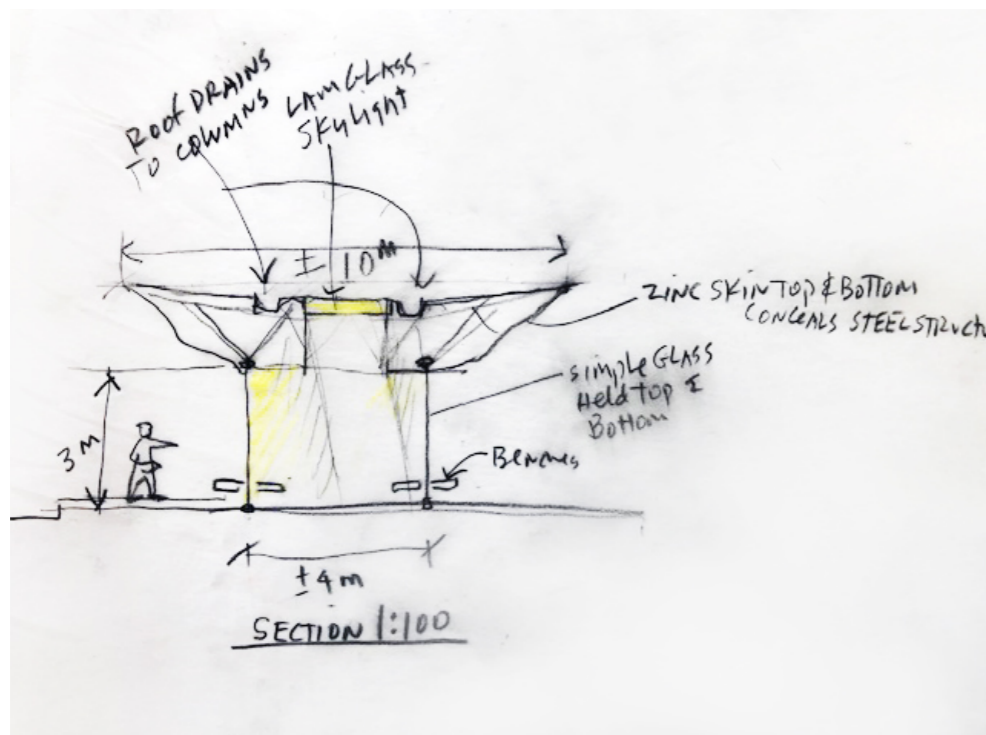 Roof DRAINS
TO COLUMNS
LAM GLASS
Skylight
± 10 m
ZINC SKIN TOP & BOTTOM
CONCEALS STEEL STRUCT
simple GLASS
Held TOP &
BOTTOM
3 m
Benches
±4 m
SECTION 1:100